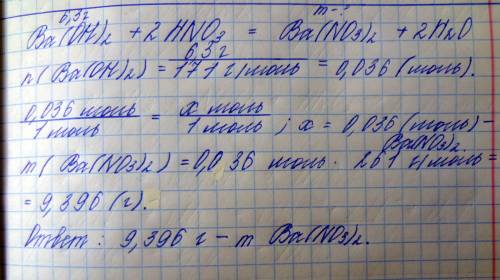 6,3г m-?
Ba(OH)₂ + 2HNO₃ = Ba(NO₃)₂ + 2H₂O
6,3г
n(Ba(OH)₂) = 171 г/моль = 0,036 (моль).
0,036 моль = x моль ; x = 0,036 (моль) –
1 моль 1 моль Ba(NO₃)₂.
m(Ba(NO₃)₂) = 0,036 моль · 261 г/моль =
= 9,396 (г).
Ответ: 9,396 г – m Ba(NO₃)₂.